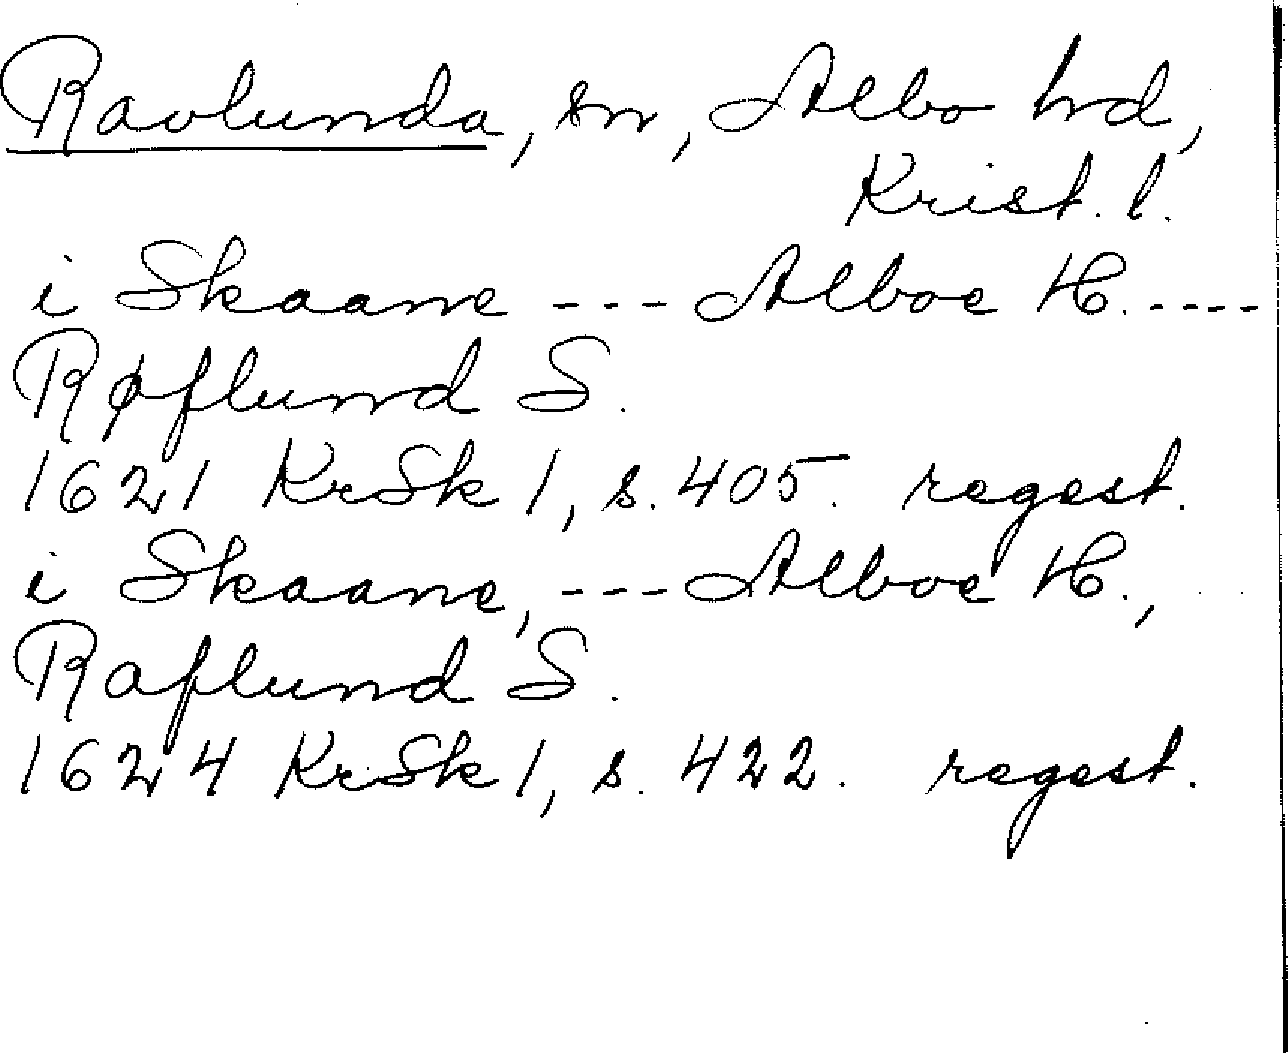 Ravlunda, sn, Albo hd,
Krist. l.
i Skaane --- Alboe H. ----
Røflund S.
1621 KrSk 1, s. 405. regest.
i Skaane, --- Alboe H.,
Raflund S.
1624 KrSk 1, s. 422. regest.